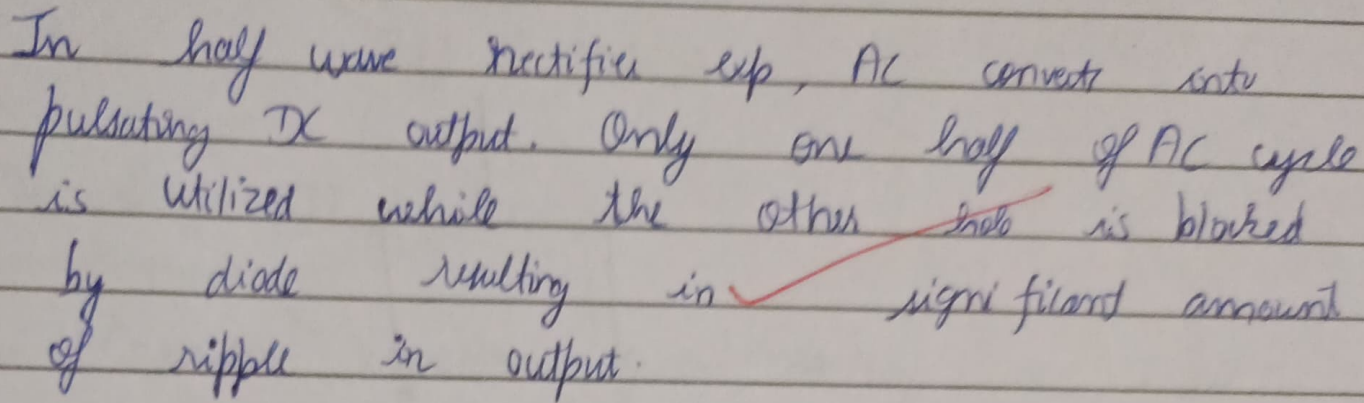 In half wave rectifier exp, AC converts into
pulsating DC output. Only one half of AC cycle
is utilized while the other half is blocked
by diode resulting in significant amount
of ripple in output.